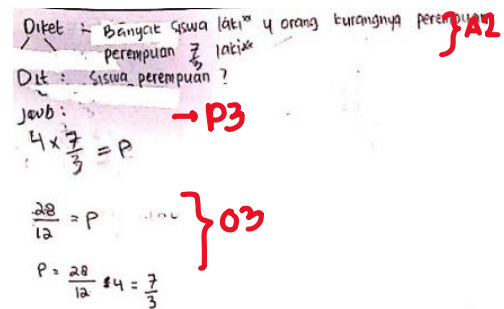 Diket :- Banyak siswa laki" 4 orang kurangnya perempuan } A2
perempuan 7/3 laki"
Dit : Siswa perempuan ?
Jawb : → P3
4 x 7/3 = P
28/12 = P } O3
P = 28/12 : 4 = 7/3